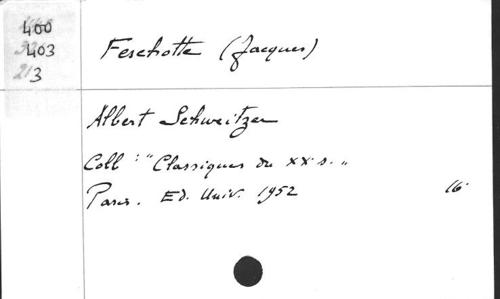 400
403
3
Feschotte (Jacques)
Albert Schweitzer
Coll : "Classiques du XX s. "
Paris. Ed. Univ. 1952
16